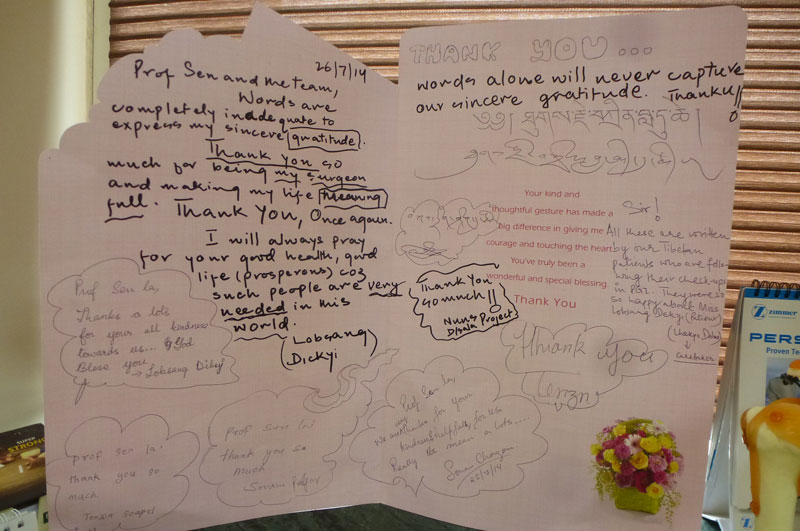 26/7/14
Prof Sen and the team,
Words are
completely inadequate to
express my sincere gratitude.
Thank you so
much for being my surgeon
and making my life meaning
full. Thank You, Once again.
I will always pray
for your good health, good
life (prosperous) coz
such people are very
needed in this
world.
(Lobsang
Dickyi)
Prof Sen la,
Thanks a lots
for your all kindness
towards us... God
Bless you
→ Lobsang
Prof Sen la.
thank you so
much
Prof Sen la
thank you so
much
THANK YOU...
words alone will never capture
our sincere gratitude. Thanku!!
ཐུགས་རྗེ་ཆེ
Your kind and
thoughtful gesture has made a
big difference in giving me
courage and touching the heart
You've truly been a
wonderful and special blessing
Thank You
Sir!
All these are written
by our Tibetan
patients who are follo-
wing their checkups
in
so happy about Miss
Lobsang Dicky
caretaker
Thank You
so much!!
Nuns
Project
Thank you
Tenzin
Prof Sen la,
for your
Really
a lots.....
SUPER
STRONG
zimmer
PERS
Proven Te